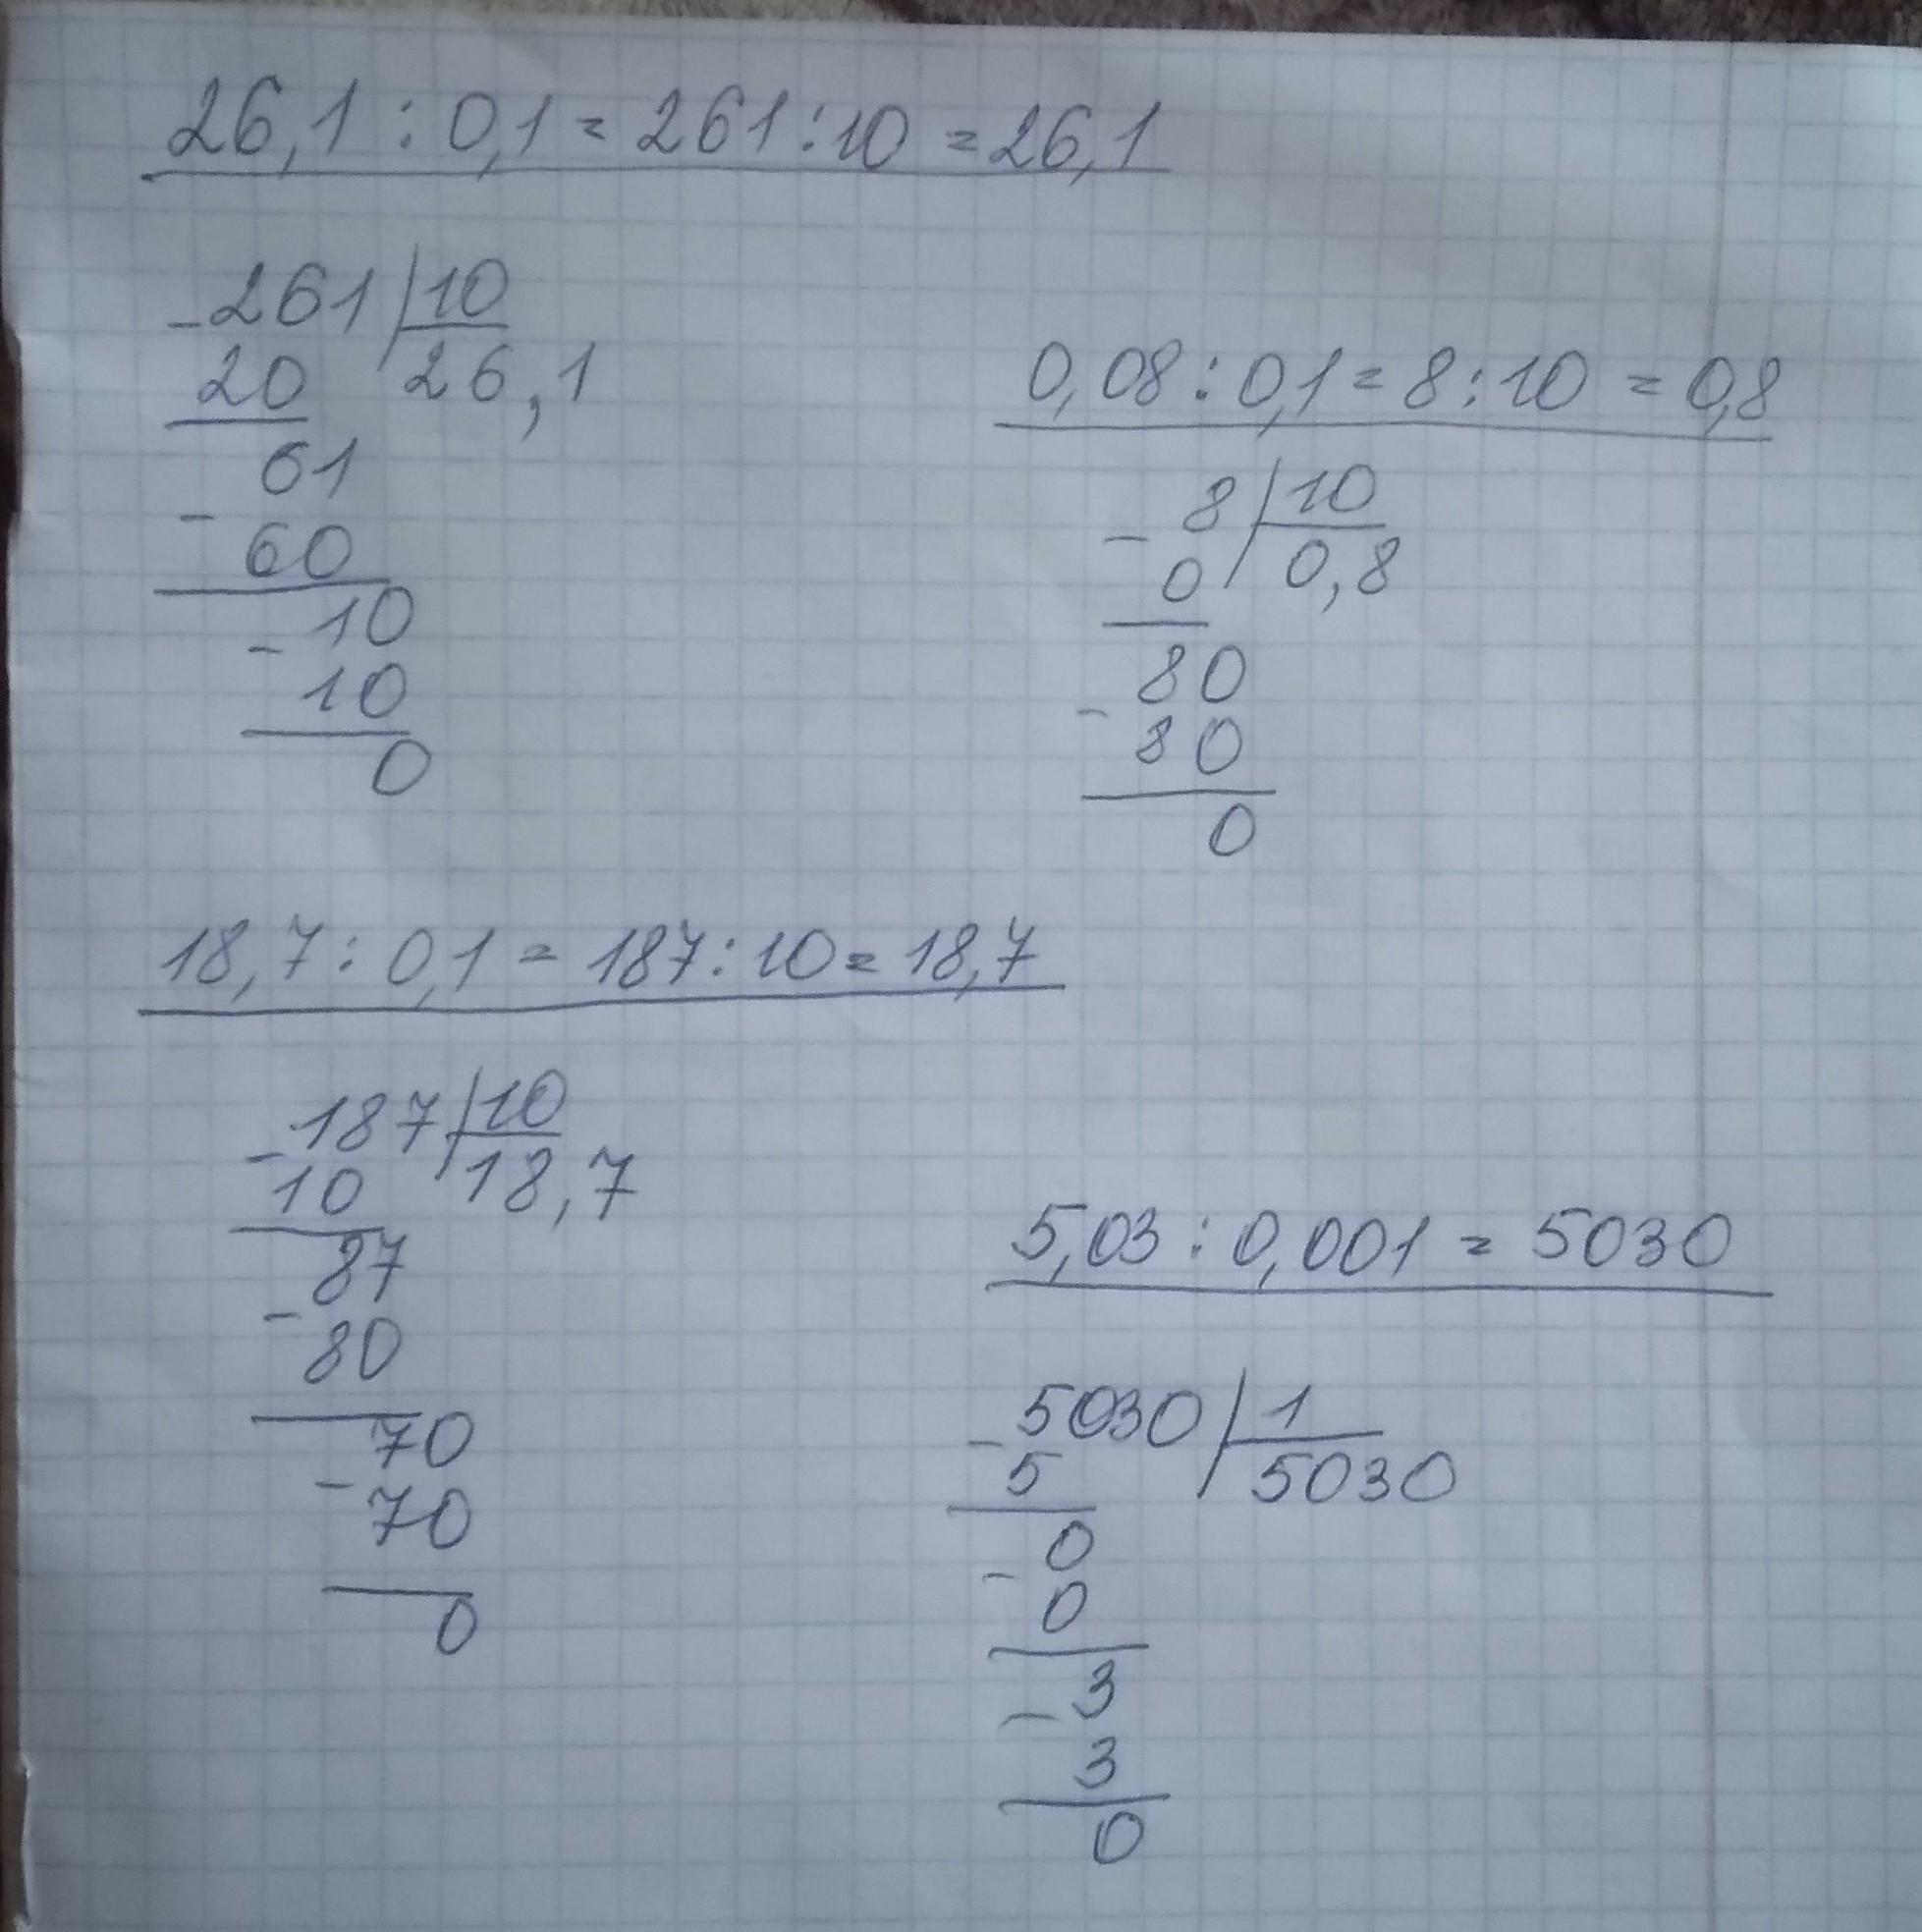 26,1 : 0,1 = 261 : 10 = 26,1
- 261 | 10
20 26,1
61
- 60
10
- 10
0
0,08 : 0,1 = 8 : 10 = 0,8
- 8 | 10
0 0,8
80
- 80
0
18,7 : 0,1 = 187 : 10 = 18,7
- 187 | 10
10 18,7
87
- 80
70
- 70
0
5,03 : 0,001 = 5030
- 5030 | 1
5 5030
0
- 0
3
- 3
0